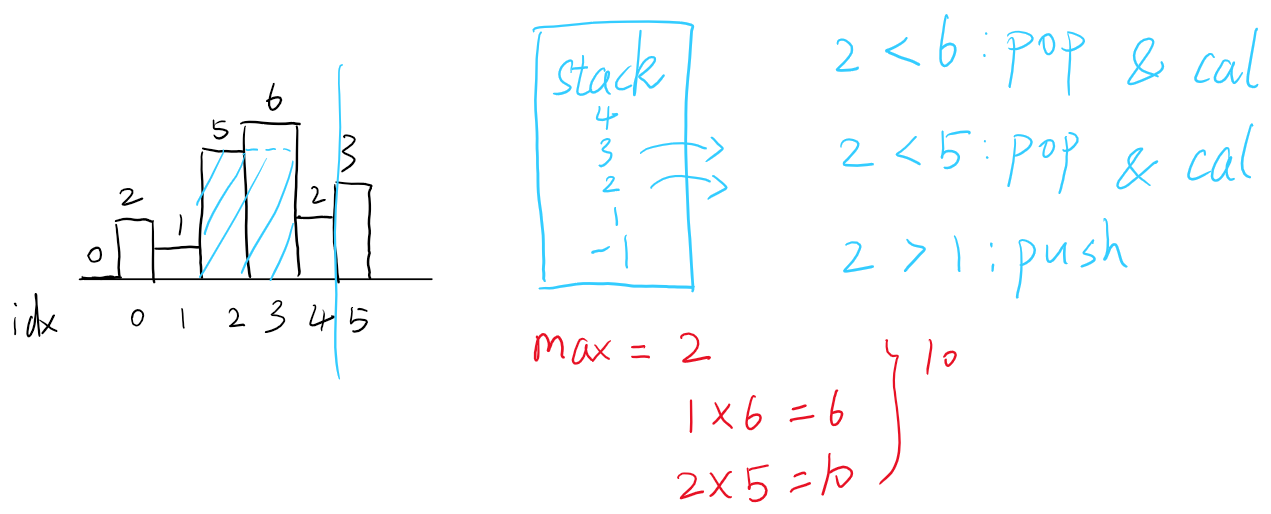 6
5
3
2
2
1
0
idx 0 1 2 3 4 5
stack
4
3
2
1
-1
2 < 6 : pop & cal
2 < 5 : pop & cal
2 > 1 : push
max = 2
1 × 6 = 6
2 × 5 = 10
10